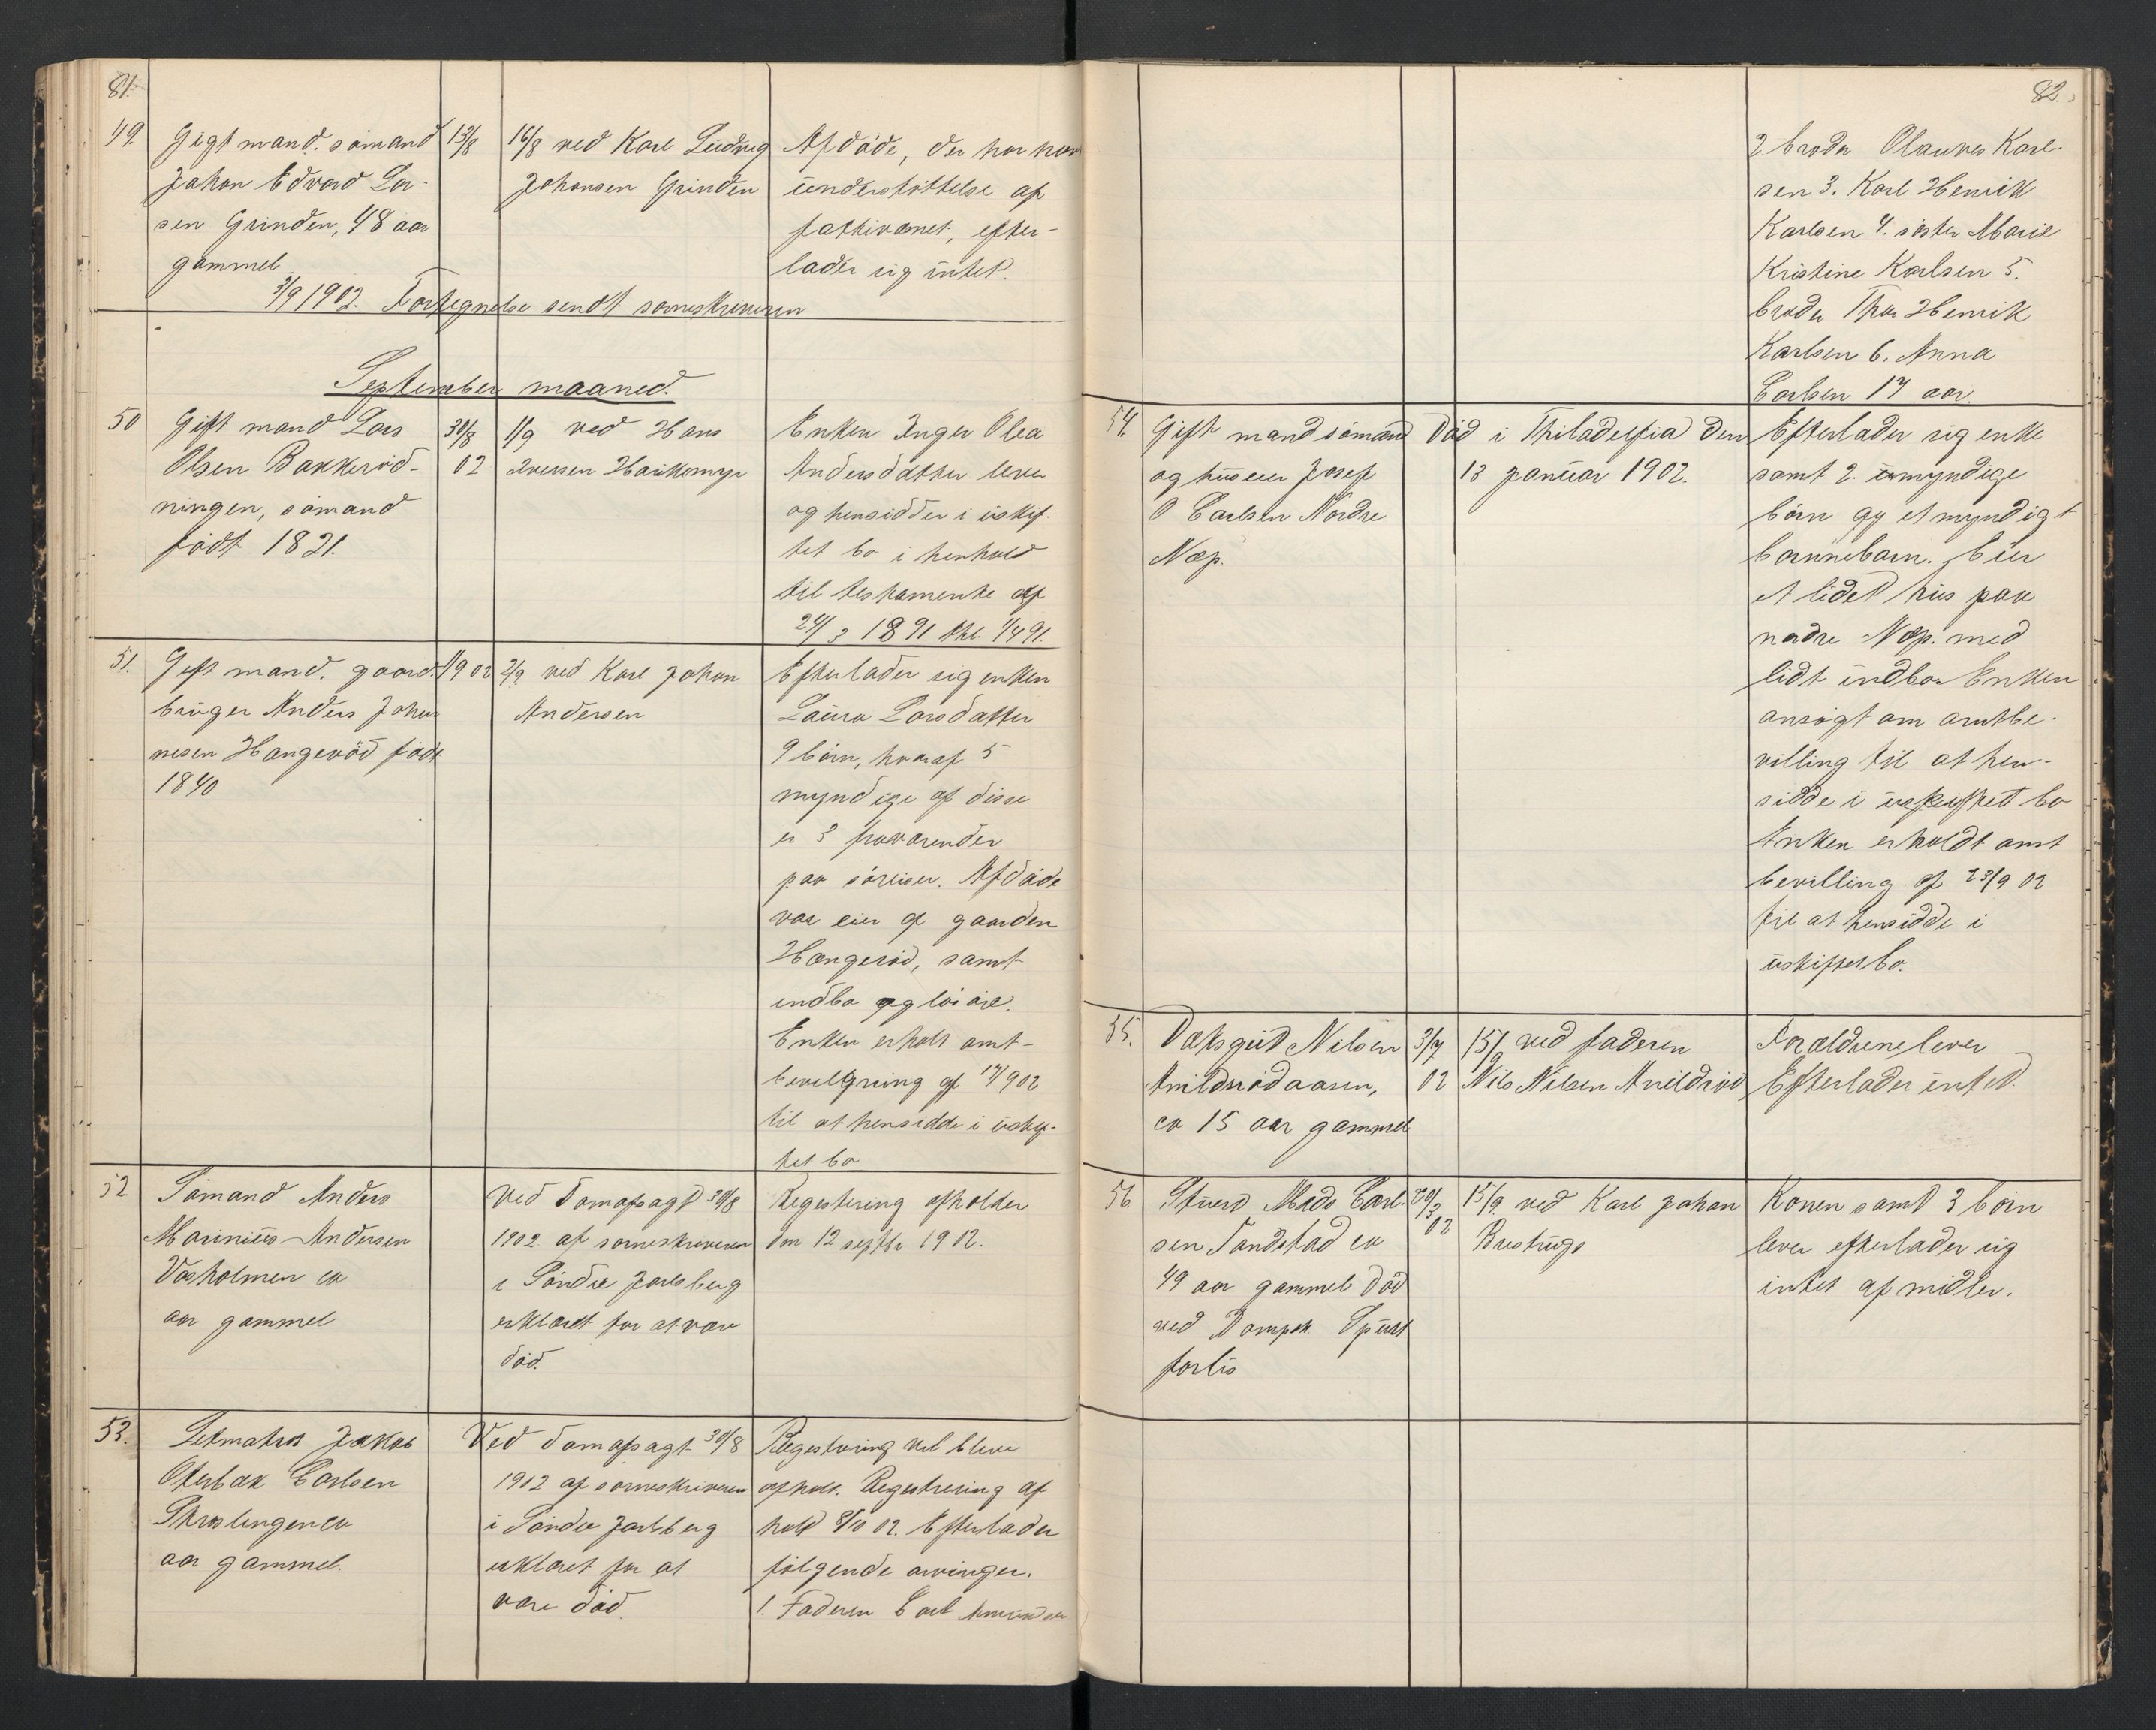 81.
49.
Gigt mand. sømand
Johan Edvard Lar-
sen Grinden, 48 aar
gammel
13/8
16/8 ved Karl Ludvig
Johansen Grinden
Afdøde, der har havt
understøttelse af
fattivænet, efter-
lader sig intet.
3/9 1902. Fortegnelse sendt sorneskriveren
September maaned.
50
Gift mand Lars
Olsen Bakkerød-
ningen, sømand
født 1821.
30/8
02
1/9 ved Hans
Iversen Haukemyr
Enken Inger Olea
Andersdatter lever
og hensidder i uskif-
tet bo i henhold
til testamente af
24/3 1891 thl. 1/4 91.
51.
Gift mand. gaard-
bruger Anders Johan
nesen Hangerød født
1840
1/9 02
2/9 ved Karl Johan
Andersen
Efterlader sig enken
Laura Larsdatter
9 børn, hvoraf 5
myndige af disse
er 3 fraværender
paa søreiser. Afdøde
var eier af gaarden
Hangerød, samt
indbo og løsøre.
Enken erholt amt-
bevilgning af 17/9 02
til at hensidde i uskif-
tet bo
52
Sømand Anders
Marinius Andersen
Vasholmen ca
aar gammel
Ved Domafsagt 30/8
1902 af sorneskriveren
i Søndre Jarlsberg
erklæret for at være
død.
Regestering afholder
den 12 septbr 1902.
53.
Letmatros Jakob
Oterbæk Carlsen
ca
aar gammel.
Ved domafsagt 30/8
1902 af sorneskriveren
i Søndre Jarlsberg
erklæret for at
være død.
Regestrering vil blive
afholt. Regestrering af
hold 8/10 02. Efterlader
følgende arvinger.
1. Faderen Carl Amundsen
82.
2 broder Olauves Karl-
sen 3. Karl Henrik
Karlsen 4. søster Marie
Kristine Karlsen 5.
broder Thor Henrik
Karlsen 6. Anna
Carlsen 17 aar.
54.
Gift mand sømand
og huseier Josef
O Carlsen Nordre
Nøp.
Død i Philadelfia den
13 januar 1902.
Efterlader sig enke
samt 2. umyndige
børn og et myndigt
barnebarn. Eier
et lidet hus paa
nordre Nøp. med
lidt indbo. Enken
ansøgt om amtbe-
villing til at hen-
sidde i uskiftet bo
Enken erholdt amt
bevilling af 23/9 02
til at hensidde i
uskiftet bo.
55.
Vaksgut Nilsen
Arildsrødaasen,
ca 15 aar gammel
3/7
02
15/9 ved faderen
Nils Nilsen Arildsrød
Forældrene lever
Efterlader intet.
56.
Stuerd Mads Carl-
sen Tandstad ca
49 aar gammel død
ved Dampsk.
forlis
20/3
02
15/9. ved Karl Johan
Konen samt 3 børn
lever efterlader sig
intet af midler.